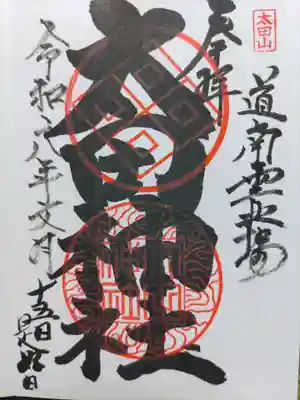 太田山
道南霊場
奉拝
太田神社
令和六年文月
十五日
是好日